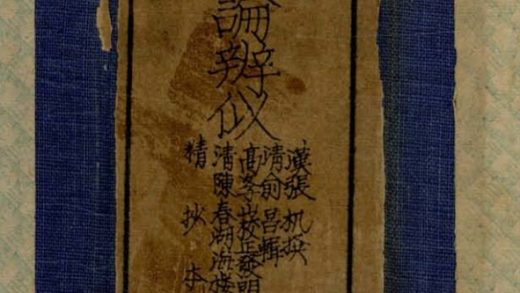 論辨似
漢張机撰
清俞昌輯
高学山校正發明
清陳春湖海樓
精抄本